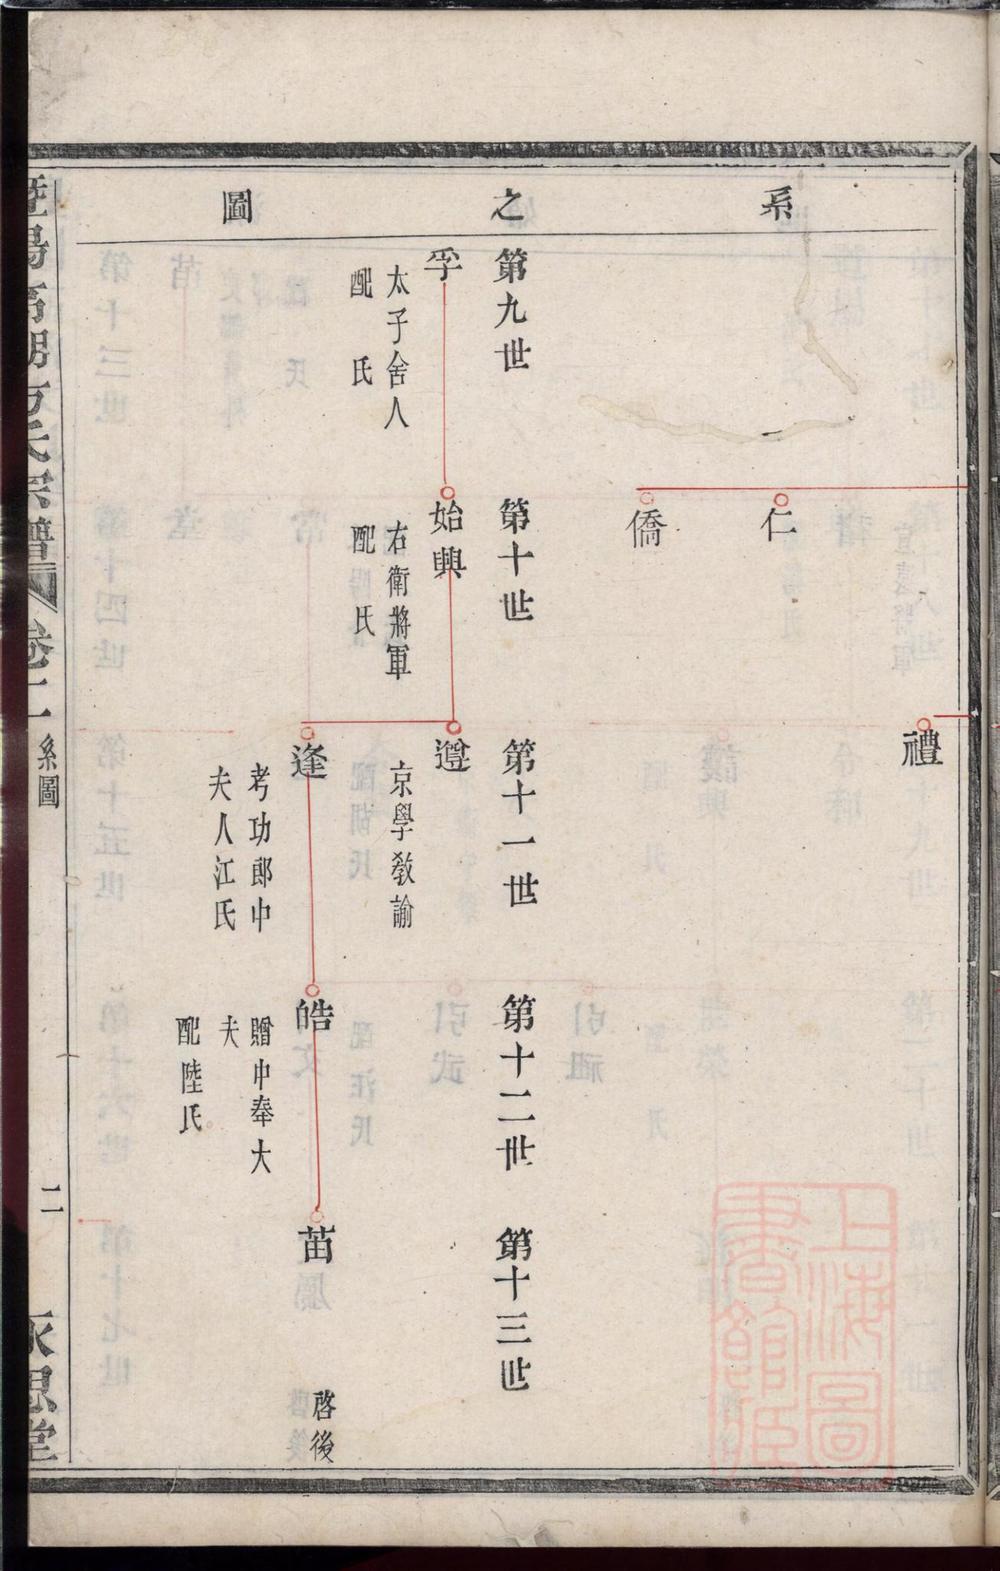 系之圖
禮
仁
僑
第九世
第十世
第十一世
第十二世
第十三世
孚
太子舍人
配 氏
始興
右衛將軍
配 氏
遵
京學教諭
逢
考功郎中
夫人江氏
皓
贈中奉大
夫
配陸氏
苗
啓後
方氏宗譜
卷二
系圖
二
永思堂
上海圖
書館藏